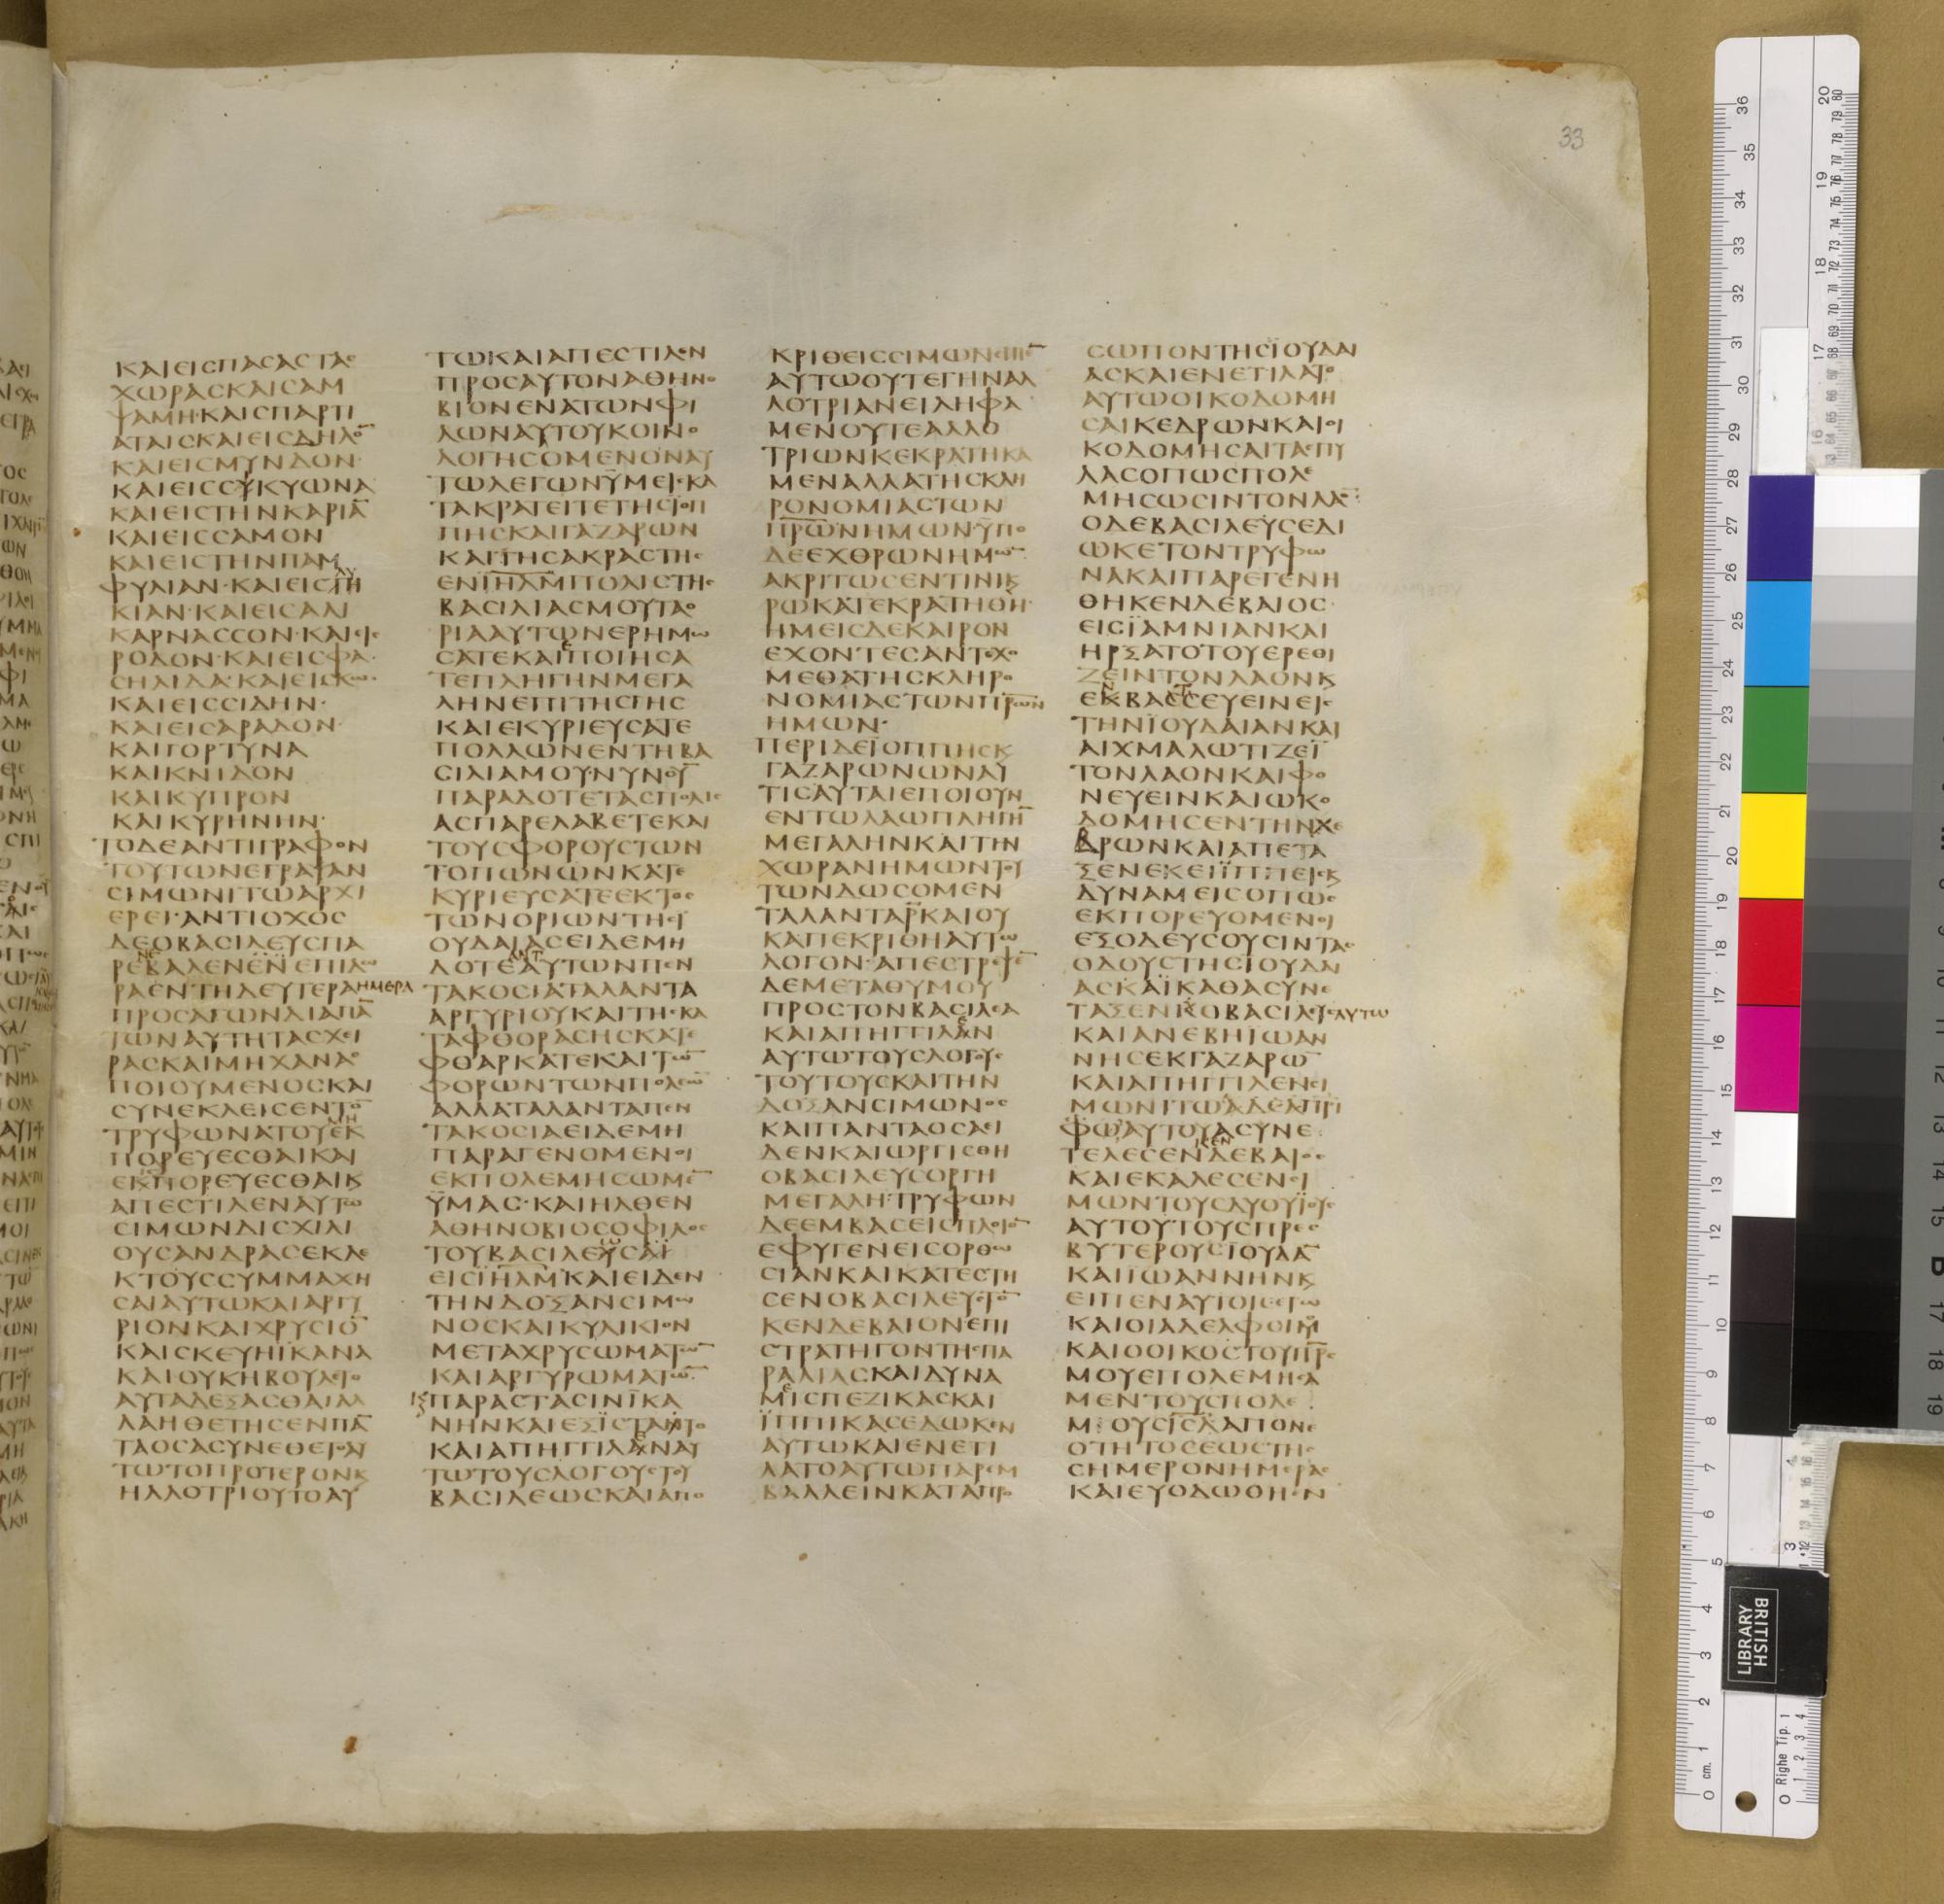 33
ΚΑΙΕΙCΠΑCΑCΤΑC
ΧΩΡΑCΚΑΙCΑΜ
ΨΑΜΗ·ΚΑΙCΠΑΡΤΙ
ΑΤΑΙCΚΑΙΕΙCΔΗΛΟ̅
ΚΑΙΕΙCΜΥΝΔΟΝ·
ΚΑΙΕΙCCΥΚΥΩΝΑ
ΚΑΙΕΙCΤΗΝΚΑΡΙΑ̅
ΚΑΙΕΙCCΑΜΟΝ
ΚΑΙΕΙCΤΗΝΠΑΜ
ΦΥΛΙΑΝ·ΚΑΙΕΙCΛΥ
ΚΙΑΝ·ΚΑΙΕΙCΑΛΙ
ΚΑΡΝΑCCΟΝ·ΚΑΙΕΙC
ΡΟΔΟΝ·ΚΑΙΕΙCΦΑ
CΗΛΙΔΑ·ΚΑΙΕΙCΚΩ·
ΚΑΙΕΙCCΙΔΗΝ·
ΚΑΙΕΙCΑΡΑΔΟΝ·
ΚΑΙΓΟΡΤΥΝΑ
ΚΑΙΚΝΙΔΟΝ
ΚΑΙΚΥΠΡΟΝ
ΚΑΙΚΥΡΗΝΗΝ·
ΤΟΔΕΑΝΤΙΓΡΑΦΟΝ
ΤΟΥΤΩΝΕΓΡΑΨΑΝ
CΙΜΩΝΙΤΩΑΡΧΙ
ΕΡΕΙ·ΑΝΤΙΟΧΟC
ΔΕΟΒΑCΙΛΕΥCΠΑ
ΡΕΝΕΒΑΛΕΝΕΝΕΠΙΔΩ
ΡΑΕΝΤΗΔΕΥΤΕΡΑΗΜΕΡΑ
ΠΡΟCΑΓΩΝΔΙΑΠΑ̅
ΤΩΝΑΥΤΗΤΑCΧΕΙ
ΡΑCΚΑΙΜΗΧΑΝΑC
ΠΟΙΟΥΜΕΝΟCΚΑΙ
CΥΝΕΚΛΕΙCΕΝΤΟ̅
ΤΡΥΦΩΝΑΤΟΥΕΚ
ΠΟΡΕΥΕCΘΑΙΚΑΙ
ΕΚΠΟΡΕΥΕCΘΑΙΚ
ΑΠΕCΤΙΛΕΝΑΥΤΩ
CΙΜΩΝΔΙCΧΙΛΙ
ΟΥCΑΝΔΡΑCΕΚΛΕ
ΚΤΟΥCCΥΜΜΑΧΗ
CΑΙΑΥΤΩΚΑΙΑΡΓΥ
ΡΙΟΝΚΑΙΧΡΥCΙΟ̅
ΚΑΙCΚΕΥΗΪΚΑΝΑ
ΚΑΙΟΥΚΗΒΟΥΛΕΤΟ
ΑΥΤΑΔΕΞΑCΘΑΙΑΛ
ΛΑΗΘΕΤΗCΕΝΠΑ̅
ΤΑΟCΑCΥΝΕΘΕΤΟΑΥ
ΤΩΤΟΠΡΟΤΕΡΟΝΚ
ΗΛΛΟΤΡΙΟΥΤΟΑΥ
ΤΩΚΑΙΑΠΕCΤΙΛΕΝ
ΠΡΟCΑΥΤΟΝΑΘΗΝΟ
ΒΙΟΝΕΝΑΤΩΝΦΙ
ΛΩΝΑΥΤΟΥΚΟΙΝΟ
ΛΟΓΗCΟΜΕΝΟΝΑΥ
ΤΩΛΕΓΩΝΫΜΕΙCΚΑ
ΤΑΚΡΑΤΕΙΤΕΤΗCΪΟΠ
ΠΗCΚΑΙΓΑΖΑΡΩΝ
ΚΑΙΤΗCΑΚΡΑCΤΗC
ΕΝΙΗΛΜΠΟΛΙCΤΗC
ΒΑCΙΛΙΑCΜΟΥΤΑΟ
ΡΙΑΑΥΤΩΝΕΡΗΜΩ
CΑΤΕΚΑΙΕΠΟΙΗCΑ
ΤΕΠΛΗΓΗΝΜΕΓΑ
ΛΗΝΕΠΙΤΗCΓΗC
ΚΑΙΕΚΥΡΙΕΥCΑΤΕ
ΠΟΛΛΩΝΕΝΤΗΒΑ
CΙΛΙΑΜΟΥ·ΝΥΝΟΥ̅
ΠΑΡΑΔΟΤΕΤΑCΠΟΛΙC
ΑCΠΑΡΕΛΑΒΕΤΕΚΑΙ
ΤΟΥCΦΟΡΟΥCΤΩΝ
ΤΟΠΩΝΩΝΚΑΤΕ
ΚΥΡΙΕΥCΑΤΕΕΚΤΟC
ΤΩΝΟΡΙΩΝΤΗCΪ
ΟΥΔΑΙΑCΕΙΔΕΜΗ
ΔΟΤΕΑΝΤΑΥΤΩΝΠΕΝ
ΤΑΚΟCΙΑΤΑΛΑΝΤΑ
ΑΡΓΥΡΙΟΥΚΑΙΤΗCΚΑ
ΤΑΦΘΟΡΑCΗCΚΑΤΕ
ΦΘΑΡΚΑΤΕΚΑΙΤΩ̅
ΦΟΡΩΝΤΩΝΠΟΛΕΩ̅
ΑΛΛΑΤΑΛΑΝΤΑΠΕΝ
ΤΑΚΟCΙΑΕΙΔΕΜΗ
ΠΑΡΑΓΕΝΟΜΕΝΟΙ
ΕΚΠΟΛΕΜΗCΩΜΕ̅
ΫΜΑC·ΚΑΙΗΛΘΕΝ
ΑΘΗΝΟΒΙΟCΟΦΙΛΟC
ΤΟΥΒΑCΙΛΕΩC
ΕΙCΙΗΛΜΚΑΙΕΙΔΕΝ
ΤΗΝΔΟΞΑΝCΙΜΩ
ΝΟCΚΑΙΚΥΛΙΚΙΟΝ
ΜΕΤΑΧΡΥCΩΜΑΤΩ̅
ΚΑΙΑΡΓΥΡΩΜΑΤΩ̅·
ΠΑΡΑCΤΑCΙΝΪΚΑ
ΝΗΝΚΑΙΕΞΙCΤΑΤΟ
ΚΑΙΑΠΗΓΓΙΛΕΝΑΥ
ΤΩΤΟΥCΛΟΓΟΥCΤΟΥ
ΒΑCΙΛΕΩCΚΑΙΑΠΟ
ΚΡΙΘΕΙCCΙΜΩΝΕΙΠΕ̅
ΑΥΤΩΟΥΤΕΓΗΝΑΛ
ΛΟΤΡΙΑΝΕΙΛΗΦΑ
ΜΕΝΟΥΤΕΑΛΛΟ
ΤΡΙΩΝΚΕΚΡΑΤΗΚΑ
ΜΕΝΑΛΛΑΤΗCΚΛΗ
ΡΟΝΟΜΙΑCΤΩΝ
ΠΡΩΝΗΜΩΝ·ΫΠΟ
ΔΕΕΧΘΡΩΝΗΜΩ̅
ΑΚΡΙΤΩCΕΝΤΙΝΙΚ
ΡΩΚΑΤΕΚΡΑΤΗΘΗ·
ΗΜΕΙCΔΕΚΑΙΡΟΝ
ΕΧΟΝΤΕCΑΝΤΕΧΟ
ΜΕΘΑΤΗCΚΛΗΡΟ
ΝΟΜΙΑCΤΩΝΠΡΩΝ
ΗΜΩΝ·
ΠΕΡΙΔΕΪΟΠΠΗCΚ
ΓΑΖΑΡΩΝΩΝΑΙ
ΤΙCΑΥΤΑΙΕΠΟΙΟΥΝ
ΕΝΤΩΛΑΩΠΛΗΓΗ̅
ΜΕΓΑΛΗΝΚΑΙΤΗΝ
ΧΩΡΑΝΗΜΩΝΤΟΥ
ΤΩΝΔΩCΟΜΕΝ
ΤΑΛΑΝΤΑΡ̅ΚΑΙΟΥ
ΚΑΠΕΚΡΙΘΗΑΥΤΩ
ΛΟΓΟΝ·ΑΠΕCΤΡΕΨΕ̅
ΔΕΜΕΤΑΘΥΜΟΥ
ΠΡΟCΤΟΝΒΑCΙΛΕΑ
ΚΑΙΑΠΗΓΓΙΛΕΝ
ΑΥΤΩΤΟΥCΛΟΓΟΥC
ΤΟΥΤΟΥCΚΑΙΤΗΝ
ΔΟΞΑΝCΙΜΩΝΟC
ΚΑΙΠΑΝΤΑΟCΑΕΙ
ΔΕΝΚΑΙΩΡΓΙCΘΗ
ΟΒΑCΙΛΕΥCΟΡΓΗ
ΜΕΓΑΛΗ·ΤΡΥΦΩΝ
ΔΕΕΜΒΑCΕΙCΠΛΟΙΟ̅
ΕΦΥΓΕΝΕΙCΟΡΘΩ
CΙΑΝΚΑΙΚΑΤΕCΤΗ
CΕΝΟΒΑCΙΛΕΥCΤΟ̅
ΚΕΝΔΕΒΑΙΟΝΕΠΙ
CΤΡΑΤΗΓΟΝΤΗCΠΑ
ΡΑΛΙΑCΚΑΙΔΥΝΑ
ΜΙCΠΕΖΙΚΑCΚΑΙ
ΪΠΠΙΚΑCΕΔΩΚΕΝ
ΑΥΤΩΚΑΙΕΝΕΤΙ
ΛΑΤΟΑΥΤΩΠΑΡΕΜ
ΒΑΛΛΕΙΝΚΑΤΑΠΡΟ
CΩΠΟΝΤΗCΪΟΥΔΑΙ
ΑCΚΑΙΕΝΕΤΙΛΑΤΟ
ΑΥΤΩΟΙΚΟΔΟΜΗ
CΑΙΚΕΔΡΩΝΚΑΙΟΙ
ΚΟΔΟΜΗCΑΙΤΑCΠΥ
ΛΑCΟΠΩCΠΟΛΕ
ΜΗCΩCΙΝΤΟΝΛΑΟ̅
ΟΔΕΒΑCΙΛΕΥCΕΔΙ
ΩΚΕΤΟΝΤΡΥΦΩ
ΝΑΚΑΙΠΑΡΕΓΕΝΗ
ΘΗΚΕΝΔΕΒΑΙΟC·
ΕΙCΪΑΜΝΙΑΝΚΑΙ
ΗΡΞΑΤΟΤΟΥΕΡΕΘΙ
ΖΕΙΝΤΟΝΛΑΟΝΚ
ΕΜΒΑΤΕΥΕΙΝΕΙC
ΤΗΝΪΟΥΔΑΙΑΝΚΑΙ
ΑΙΧΜΑΛΩΤΙΖΕΙ̅
ΤΟΝΛΑΟΝΚΑΙΦΟ
ΝΕΥΕΙΝΚΑΙΩΚΟ
ΔΟΜΗCΕΝΤΗΝΧΕ
ΒΡΩΝΚΑΙΑΠΕΤΑ
ΞΕΝΕΚΕΙΪΠΠΕΙCΚ
ΔΥΝΑΜΕΙCΟΠΩC
ΕΚΠΟΡΕΥΟΜΕΝΟΙ
ΕΞΟΔΕΥCΟΥCΙΝΤΑC
ΟΔΟΥCΤΗCΪΟΥΔΑΙ
ΑCΚΑΙΚΑΘΑCΥΝΕ
ΤΑΞΕΝΟΒΑCΙΛΕΥCΑΥΤΩ
ΚΑΙΑΝΕΒΗΪΩΑΝ
ΝΗCΕΚΓΑΖΑΡΩ̅
ΚΑΙΑΠΗΓΓΙΛΕΝCΙ
ΜΩΝΙΤΩΠΡΙ
ΑΥΤΟΥΑCΥΝΕ
ΤΕΛΕCΕΝΚΕΝΔΕΒΑΙΟC
ΚΑΙΕΚΑΛΕCΕΝCΙ
ΜΩΝΤΟΥCΔΥΟΥΪΟΥC
ΑΥΤΟΥΤΟΥCΠΡΕC
ΒΥΤΕΡΟΥCΪΟΥΔΑ̅
ΚΑΙΪΩΑΝΝΗΝΚ
ΕΙΠΕΝΑΥΤΟΙCΕΓΩ
ΚΑΙΟΙΑΔΕΛΦΟΙΜ
ΚΑΙΟΟΙΚΟCΤΟΥΠΡC
ΜΟΥΕΠΟΛΕΜΗCΑ
ΜΕΝΤΟΥCΠΟΛΕ
ΜΙΟΥCΙCΛΑΠΟΝΕ
ΟΤΗΤΟCΕΩCΤΗC
CΗΜΕΡΟΝΗΜΕΡΑC
ΚΑΙΕΥΟΔΩΘΗΕΝ
LIBRARY
BRITISH